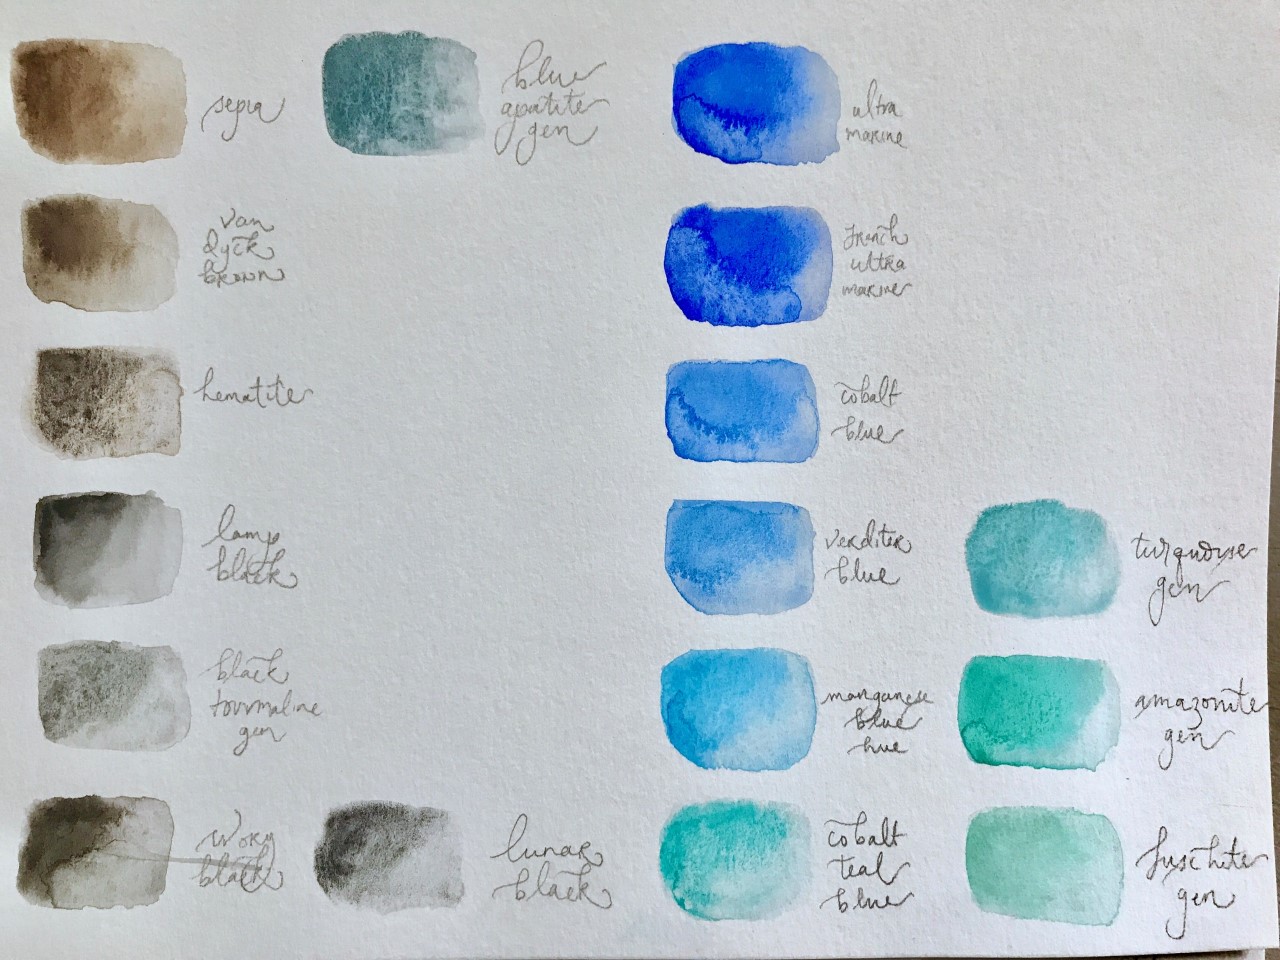 sepia
blue
apatite
gen
ultra
marine
van
dyck
brown
french
ultra
marine
hematite
cobalt
blue
lamp
black
verditer
blue
turquoise
gen
black
tourmaline
gen
manganese
blue
hue
amazonite
gen
ivory
black
lunar
black
cobalt
teal
blue
fuschite
gen